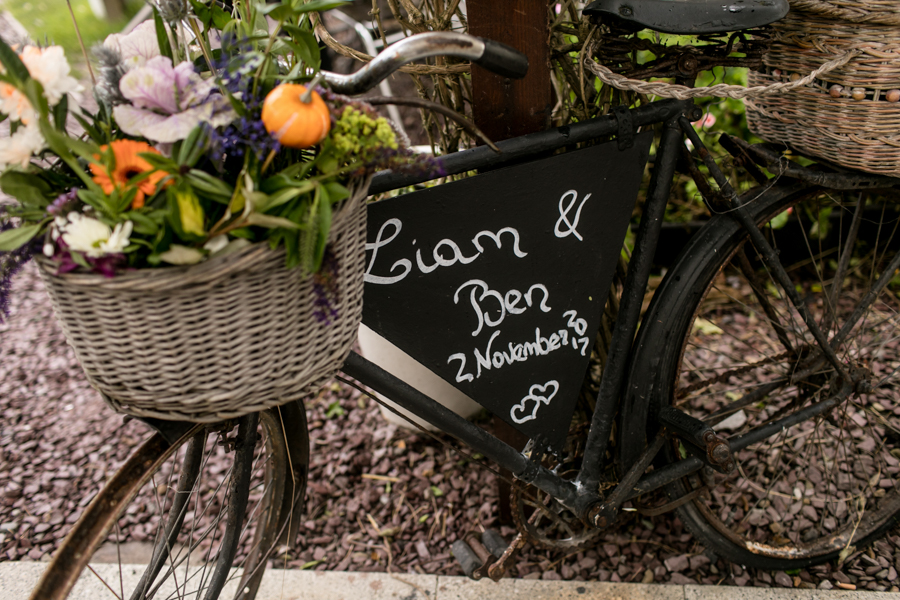 Liam &
Ben
2 November 2017